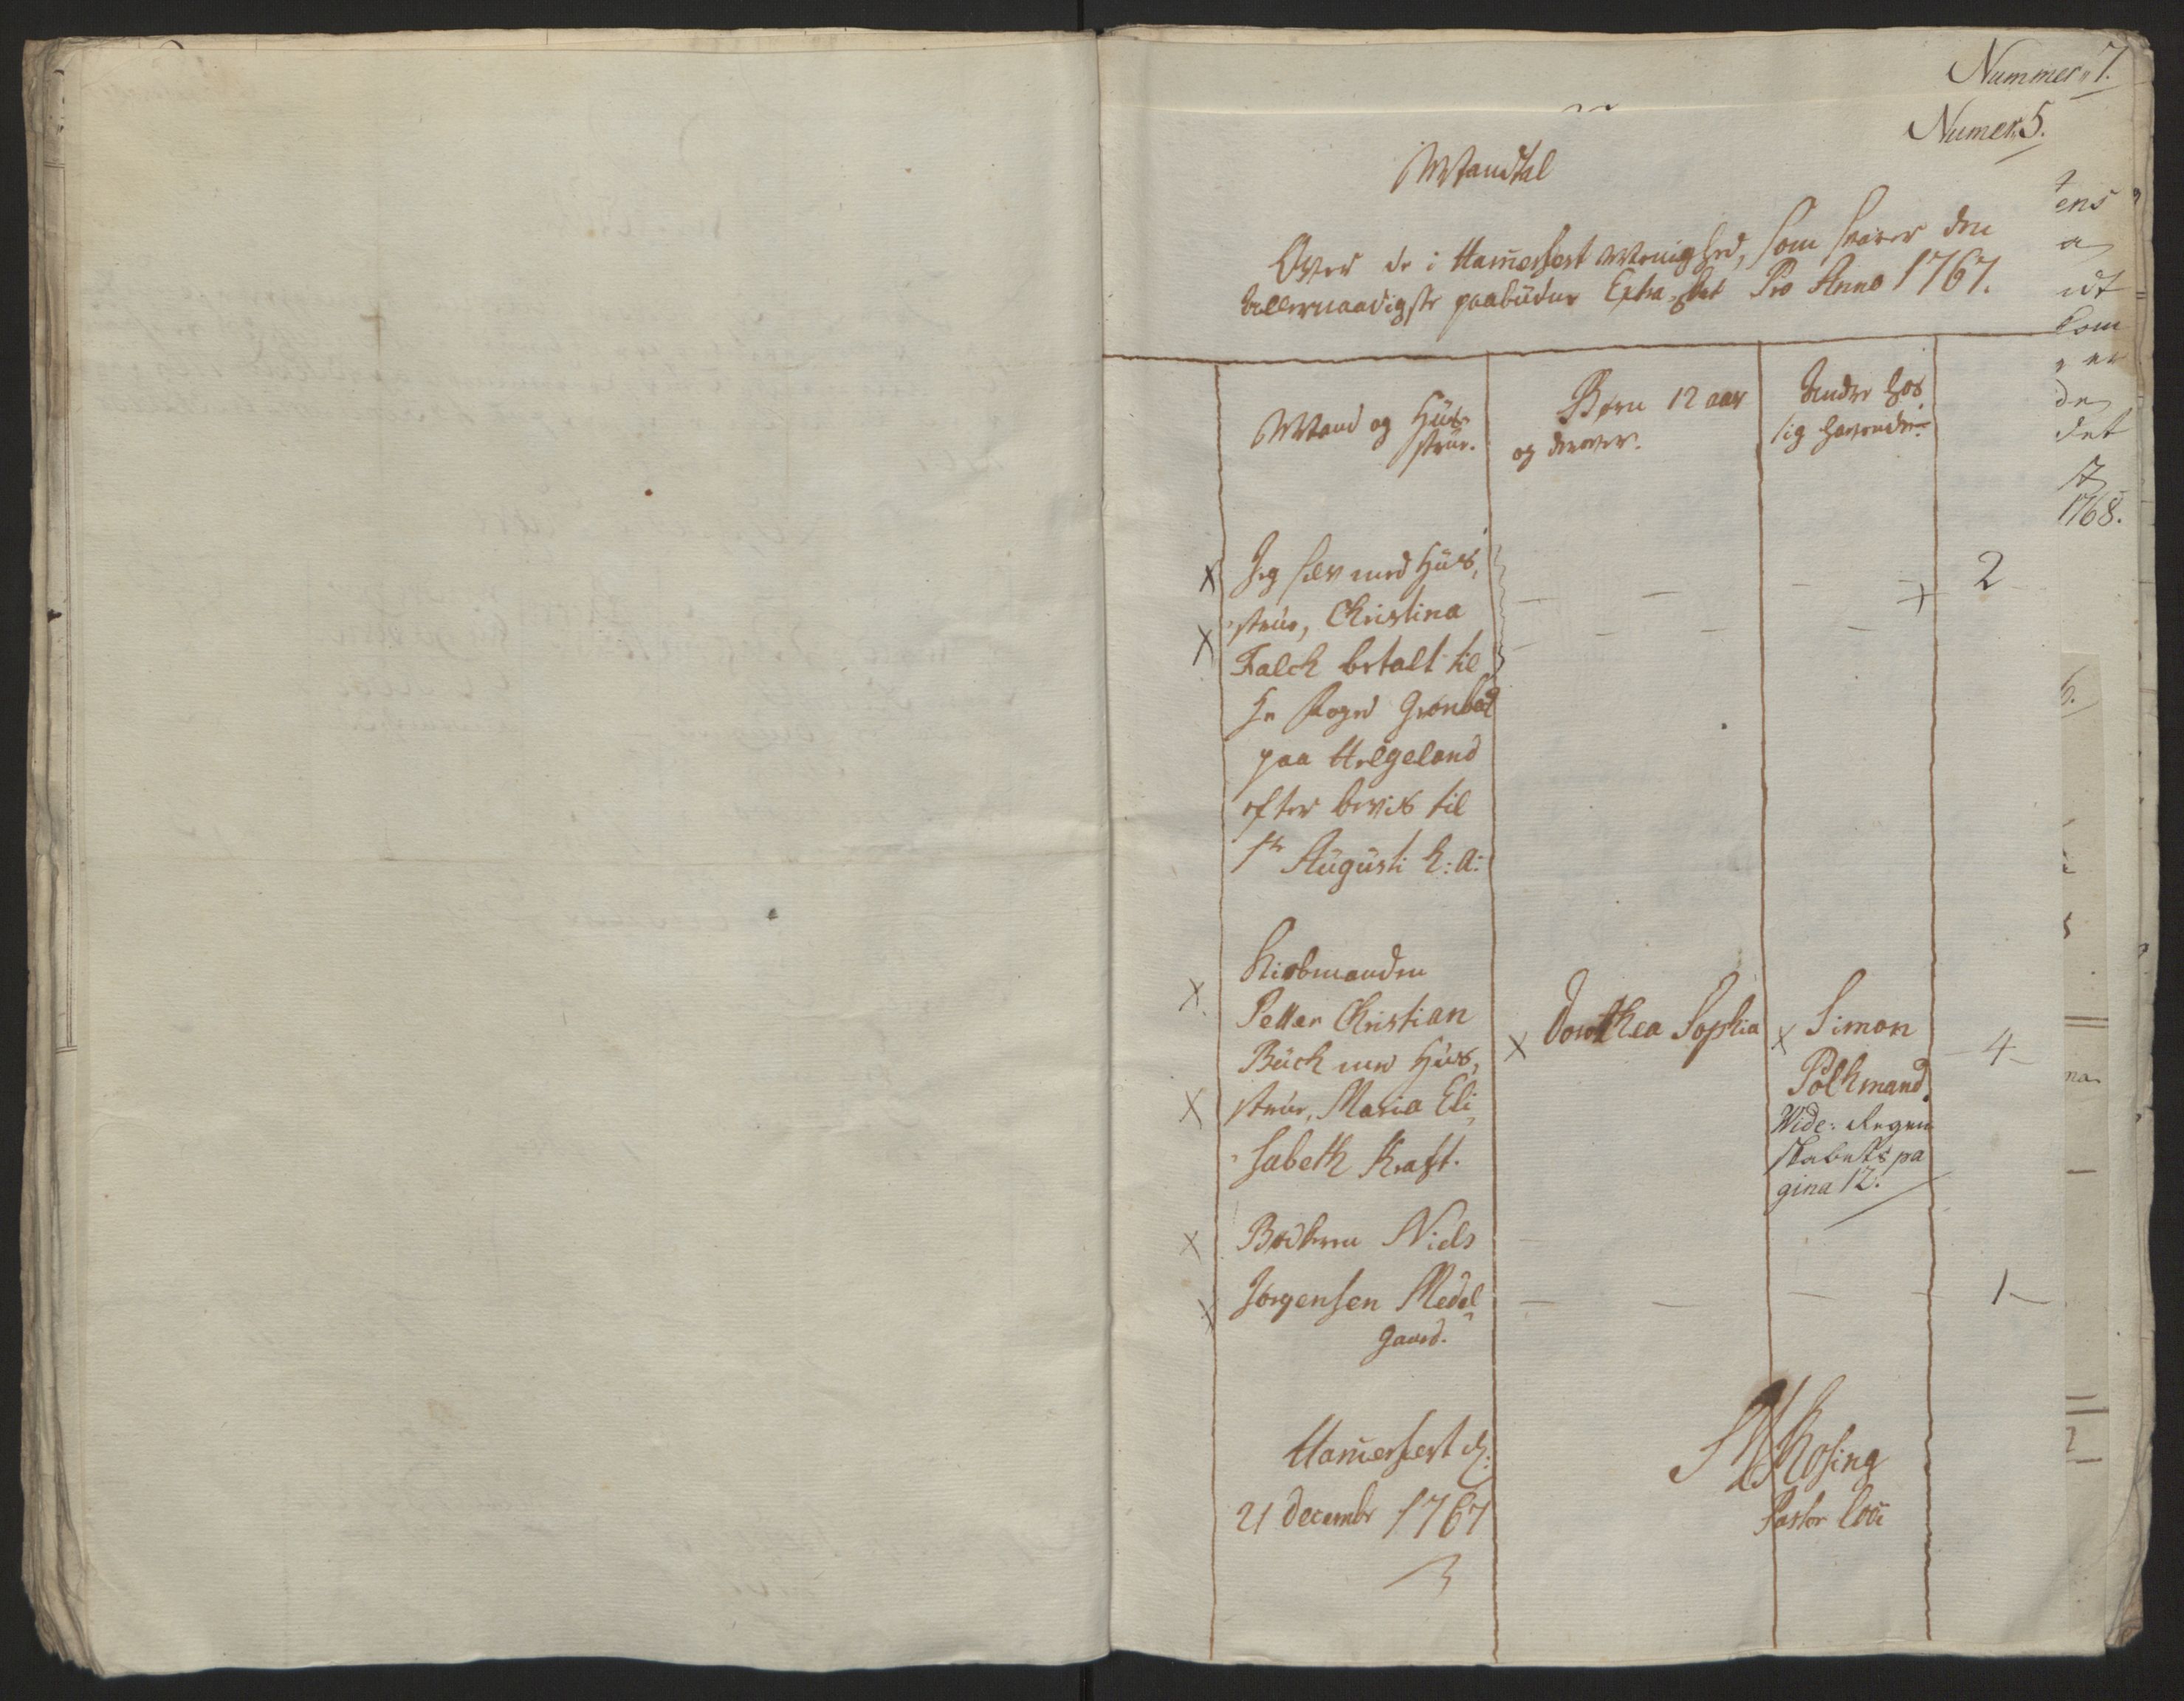 Nummer 7.
Numer 5.
Mandtal
Over de i Ham̄erfest Menighed, som svarer den
allernaadigste paabüdne Extra Skat Pro Anno 1767.
Mand og Hüs-
strüe.
Børn 12 aar
og derover.
Andre hos
sig havende.
Jeg selv med Hüs,
strüe, Christina
Falck betalt til
Hr Foged Grønbeck
paa Helgeland
efter beviis til
1te Augusti h: a:
2
Kiøbmanden
Petter Christian
Büch med Hüs,
strüe, Maria Eli,
sabeth Kraft.
Dorothea Sophia
Simon
Polkmand
Wide: Regen
skabets pa
gina 12.
4
Bødkeren Niels
Jørgensen Medel
gaard.
1
Ham̄erfest d:
21 decembr 1767
Kosing
Pastor loci
ens
a
idt
som
de
det
1768.